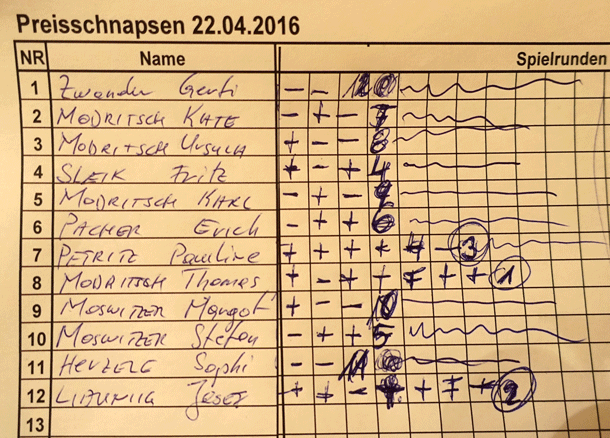 Preisschnapsen 22.04.2016
NR Name Spielrunden
1 Zwander Gerti - - 12
2 MODRITSCH KATE - + - 7
3 MODRITSCH URSULA + - - 8
4 SLEIK Fritz + - + 4
5 MODRITSCH KARL - + - 9
6 PACHER Erich - + + 6
7 PETRITZ Pauline + + + + + - 3
8 MODRITSCH Thomas + - + + + + + 1
9 MOSWITZER Margot + - - 10
10 MOSWITZER Stefan - + + 5
11 Sophi - - 11
12 Josef + + - + + + + 2
13